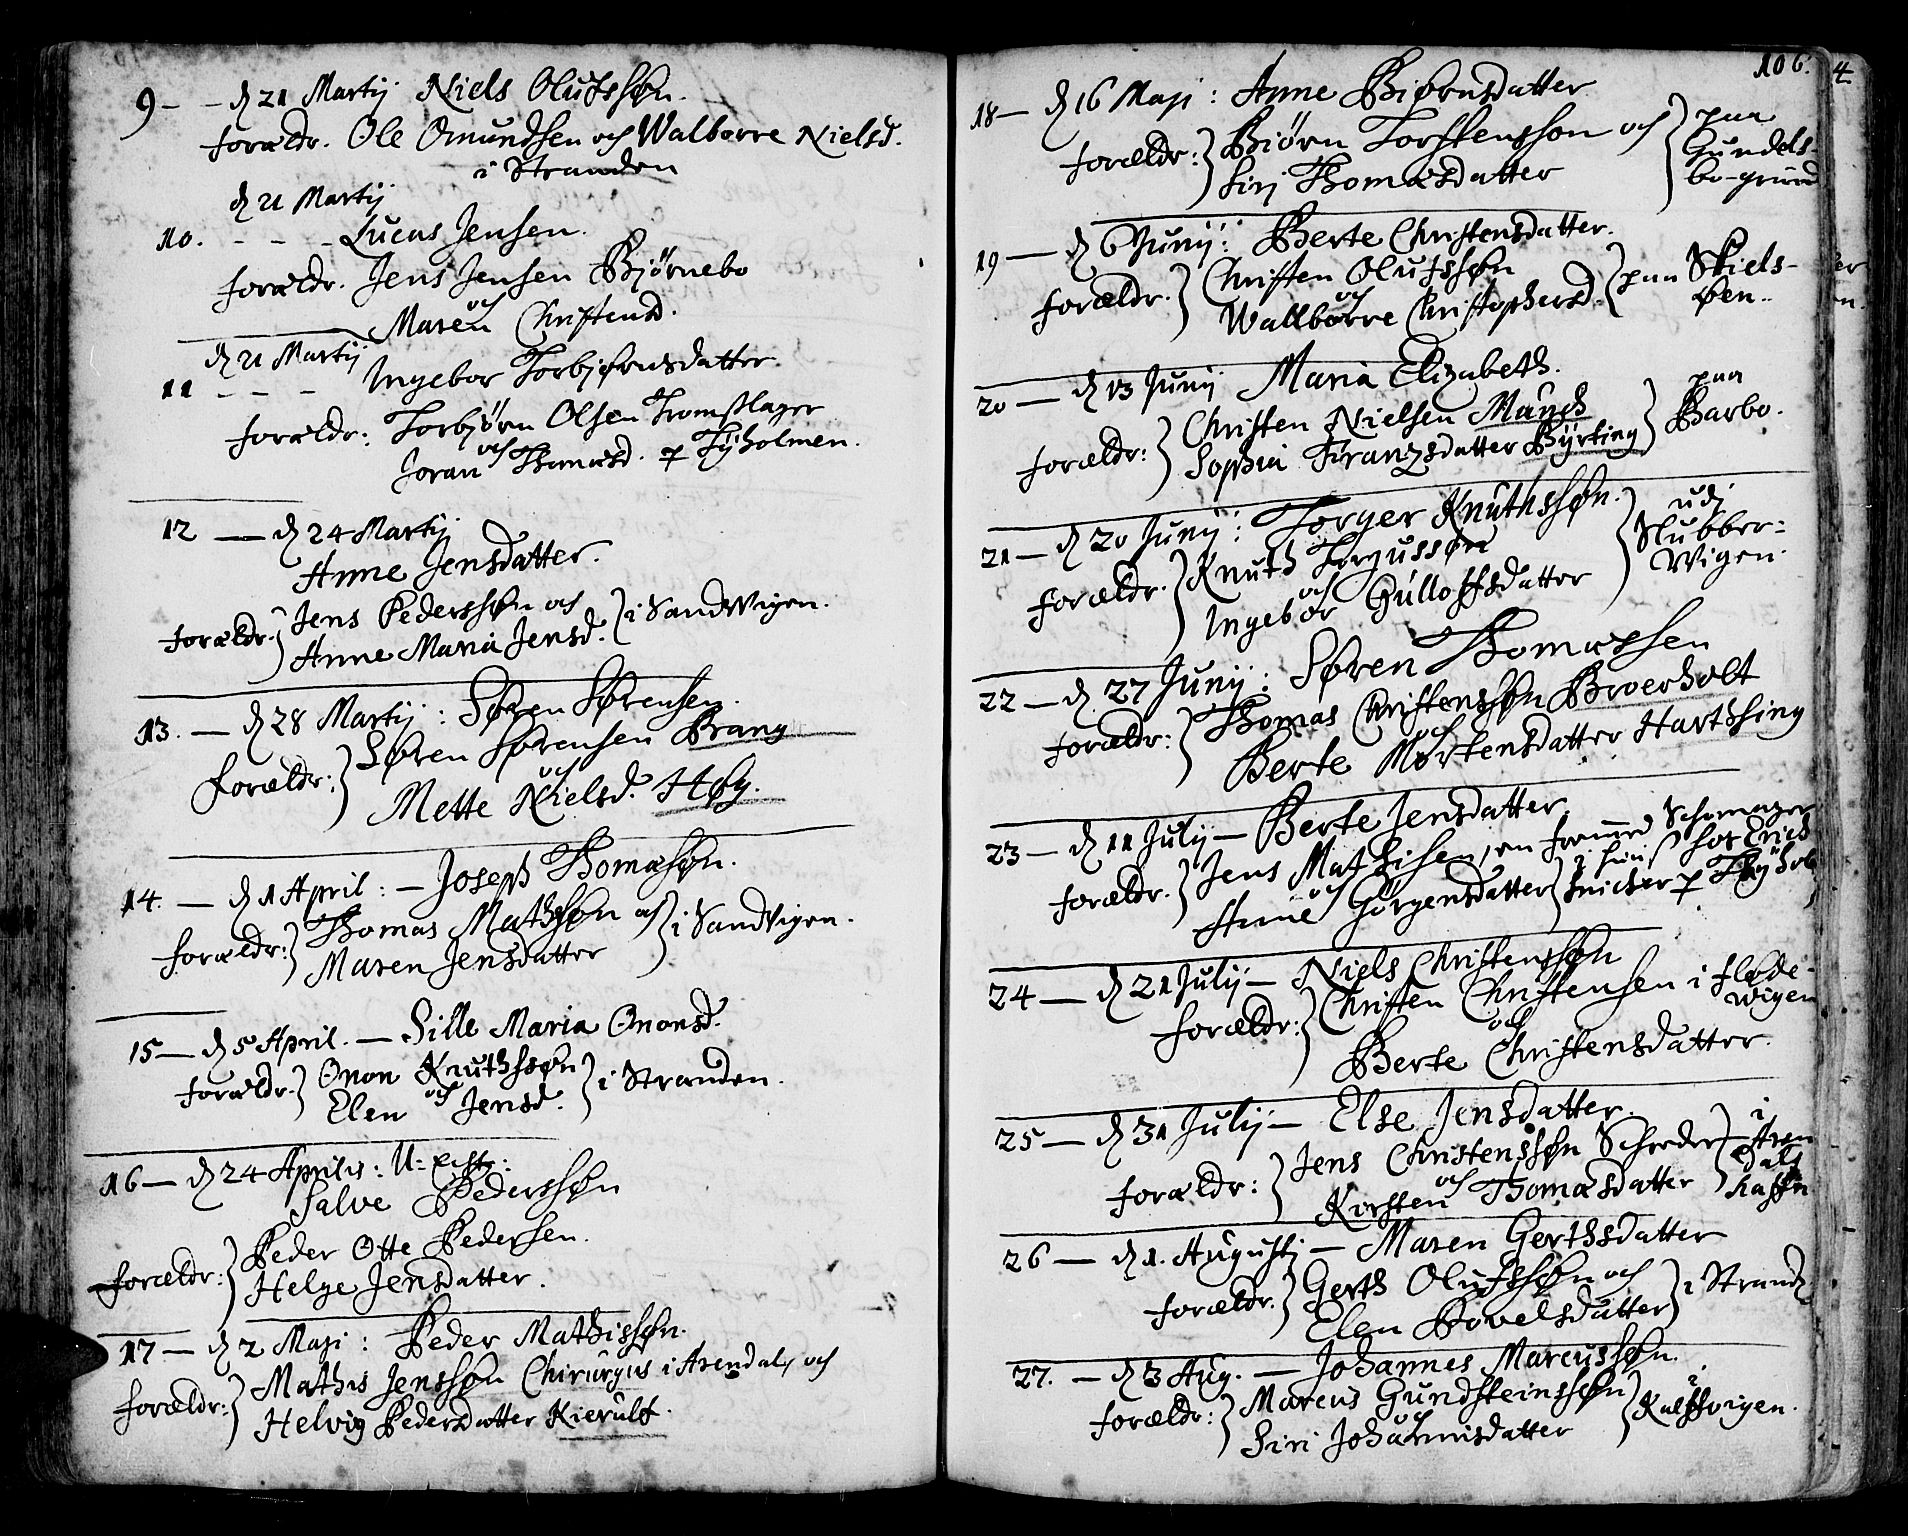 9 - - d 21 Martij Niels Olufssøn.
forældr. Ole Omundsen och Walborre Nielsd.
i Stranden
d 21 Martij
10. - - - Lucas Jensen.
forældr. Jens Jensen Bjørnebo
och
Maren Christensd.
d 21 Martij
11 - - - Ingebor Torbjørnsdatter.
forældr: Torbjørn Olsen Tromslager
och
Joran Thomæsd. p Tyholmen.
12 — d 24 Martij
Anne Jensdatter.
forældr. Jens Pederssøn och
Anne Maria Jensd. i Sandvigen.
13. — d 28 Martij: Søren Sørensen.
forældr: Søren Sørensen Brang
och
Mette Nielsd. Høy.
14. — d 1 April: — Joseph Thomæsøn.
forældr: Thomas Mathssøn och
Maren Jensdatter i Sandvigen.
15 — d 5 April. — Sille Maria Ononsd.
forældr. Onon Knuthssøn
och
Elen Jensd. i Stranden.
16 — d 24 Aprilis: U: echt:
Salve Pederssøn
forældr: Peder Otte Pedersen.
Helge Jensdatter.
17 — d 2 Maji: Peder Mathissøn.
forældr: Mathis Jenssøn Chirurgus i Arendal, och
Helvig Pedersdatter Kierulf.
106.
4
18 — d 16 Maji: Anne Biørnsdatter
forældr: Biørn Torstensson och
Siri Thomæsdatter
paa
Gundels-
bo-grund
19 — d 6 Junij: Berte Christensdatter.
forældr. Christen Olufssøn
och
Wallborre Christophersd. paa Skiels-
øen.
20 — d 13 Junij Maria Elizabeth.
forældr: Christen Nielsen Munch
Sophia Franzsdatter Byrting
paa
Barbo.
21 — d 20 Junij: Torger Knuthssøn.
forældr. Knuth Torgussøn
och
Ingebor Gulloffsdatter
udj
Slubber-
Wigen.
22 — d 27 Junij: Søren Thomæsen
forældr: Thomas Christenssøn Broerholt
och
Berte Mortensdatter Harthsing
23 — d 11 July — Berte Jensdatter.
forældr. Jens Mathisen, en fremmed Schomager
och
Anne Görgensdatter hos Erich
Snicker p Tyhol
24 — d 21 Julij — Niels Christenssøn
forældr: Christen Christensen i Fløde-
wigen
och
Berte Christensdatter.
25 — d 31 Julij — Else Jensdatter.
forældr: Jens Christenssøn Schreder
och
Kirsten Thomæsdatter
i
Aren
dals
haffn
26 — d 1. Augustj — Maren Gerthsdatter
forældr. Gerth Olufssøn och
Elen Povelsdatter i Strand
27. — d 3 Aug. — Johannes Marcussøn.
forældr: Marcus Gundsteinssøn
och
Siri Johannisdatter
i
Kalffvigen.